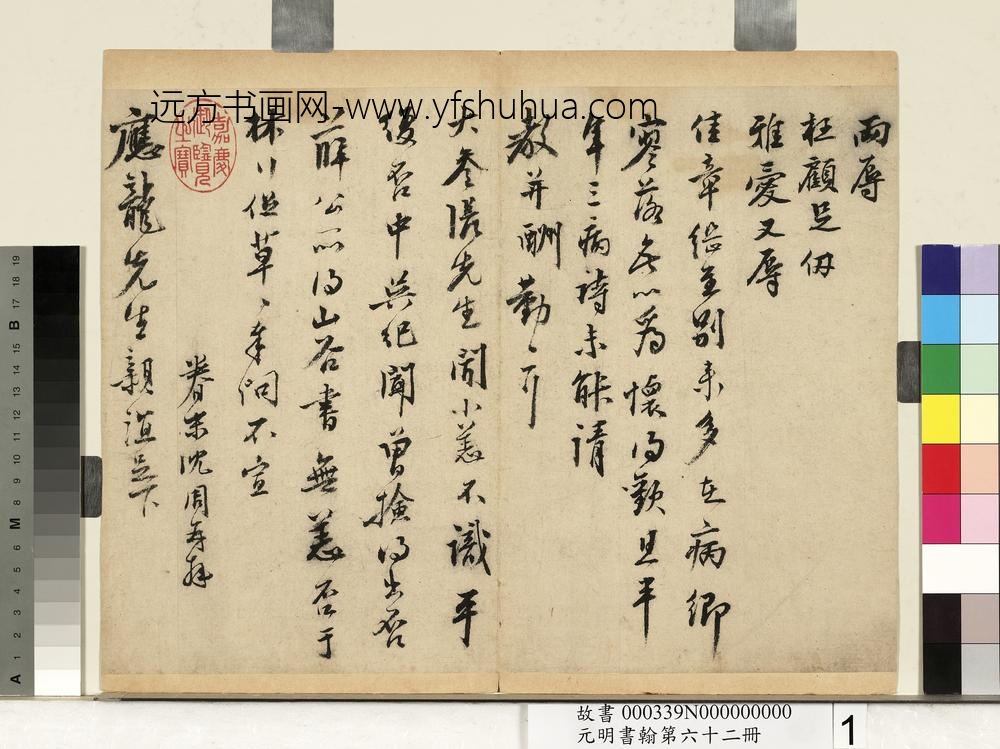 兩辱
枉顧足仞
雅愛又辱
佳章繼至別來多在病鄉
寥落無以為懷得歎且半
年三病詩未能請
教并酬勤々耳
大參張先生聞小恙不識平
復否中吳紀聞曾撿得出否
解公所得山谷書無恙否于
但草々奉問不宣
眷末沈周再拜
應龍先生親誼足下
嘉慶
御覽
之寶
远方书画网-www.yfshuhua.com
故書 000339N000000000
元明書翰第六十二冊
1
A 1 2 3 4 5 6 M 8 9 10 11 12 13 14 15 B 17 18 19